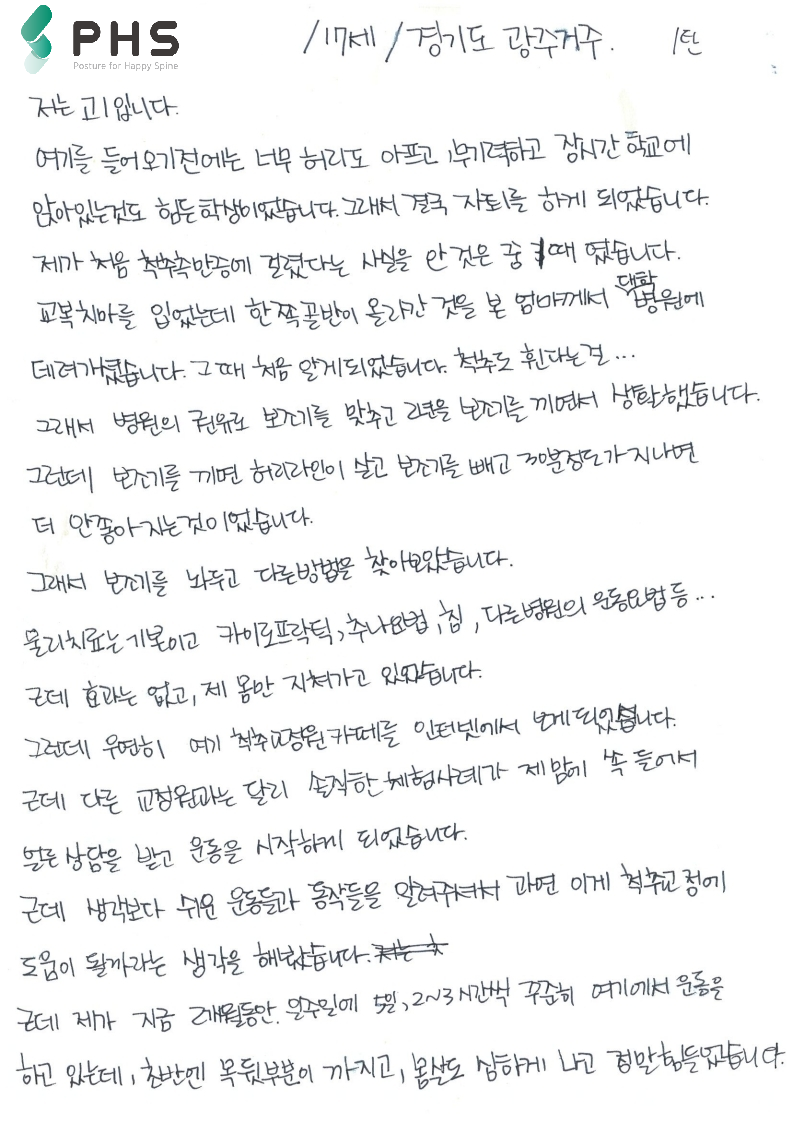 PHS
Posture for Happy Spine
/17세 / 경기도 광주거주. 1탄
저는 고1입니다.
여기를 들어오기전에는 너무 허리도 아프고, 무기력하고 장시간 학교에
앉아있는것도 힘든학생이었습니다. 그래서 결국 자퇴를 하게 되었습니다.
제가 처음 척추측만증에 걸렸다는 사실을 안 것은 중 1때 였습니다.
교복치마를 입었는데 한쪽골반이 올라간 것을 본 엄마께서 대학병원에
데려가셨습니다. 그때 처음 알게되었습니다. 척추도 휜다는걸...
그래서 병원의 권유로 보조기를 맞추고 2년을 보조기를 끼면서 생활했습니다.
그런데 보조기를 끼면 허리라인이 살고 보조기를 빼고 30분정도가 지나면
더 안좋아지는것이었습니다.
그래서 보조기를 놔두고 다른방법을 찾아보았습니다.
물리치료는 기본이고 카이로프락틱, 추나요법, 침, 다른병원의 운동요법 등...
근데 효과는 없고, 제 몸만 지쳐가고 있었습니다.
그런데 우연히 여기 척추교정원 카페를 인터넷에서 보게되었습니다.
근데 다른 교정원과는 달리 솔직한 체험사례가 제 맘에 쏙 들어서
얼른 상담을 받고 운동을 시작하게 되었습니다.
근데 생각보다 쉬운 운동들과 동작들을 알려주셔서 과연 이게 척추교정에
도움이 될까라는 생각을 해봤습니다.
근데 제가 지금 2개월동안. 일주일에 5일, 2~3시간씩 꾸준히 여기에서 운동을
하고 있는데, 초반엔 목뒷부분이 까지고, 몸살도 심하게 나고 정말힘들었습니다.